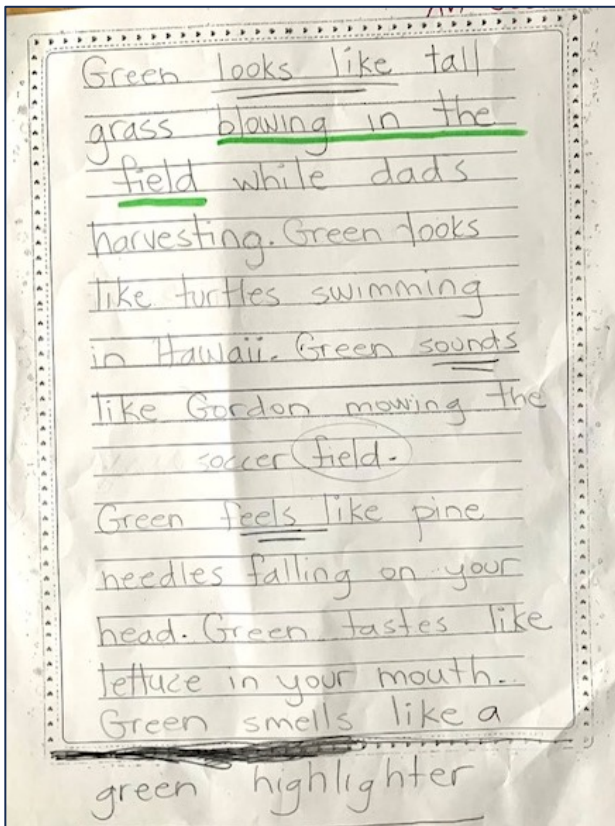 Green looks like tall
grass blowing in the
field while dads
harvesting. Green looks
like turtles swimming
in Hawaii. Green sounds
like Gordon mowing the
soccer field.
Green feels like pine
needles falling on your
head. Green tastes like
lettuce in your mouth.
Green smells like a
green highlighter